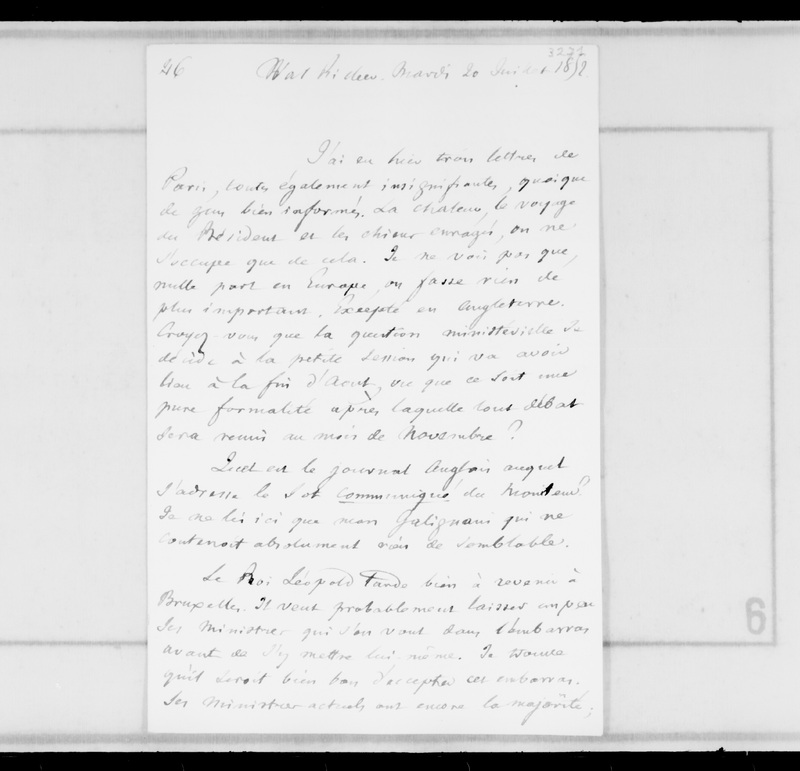 3271
46 Val Richer. Mardi 20 Juillet 1852
J'ai eu hier trois lettres de
Paris, toutes également insignifiantes, quoique
de gens bien informés. La chaleur, le voyage
du Président et les chiens enragés, on ne
s'occupe que de cela. Je ne vois pas que,
nulle part en Europe, on fasse rien de
plus important. Excepté en Angleterre.
Croyez-vous que la question ministérielle se
décide à la petite session qui va avoir
lieu à la fin d'Aout, ou que ce soit une
pure formalité après laquelle tout débat
sera remis au mois de Novembre ?
Quel est le journal Anglais auquel
s'adresse le sot Communiqué du Moniteur ?
Je ne lis ici que mon Galignani qui ne
contenoit absolument rien de semblable.
Le Roi Léopold tarde bien à revenir à
Bruxelles. Il veut probablement laisser un peu
ses Ministres qui s'en vont dans l'embarras
avant de s'y mettre lui-même. Je trouve
qu'il seroit bien bon d'accepter cet embarras.
Ses Ministres actuels ont encore la majorité ;
6